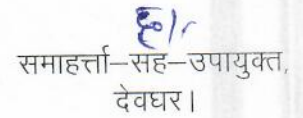 ह०/-
समाहर्त्ता–सह–उपायुक्त,
देवघर।